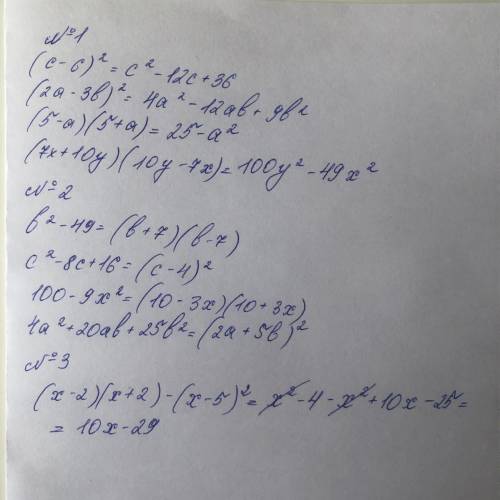 №1
(c-6)² = c² - 12c + 36
(2a - 3b)² = 4a² - 12ab + 9b²
(5-a)(5+a) = 25 - a²
(7x+10y)(10y-7x) = 100y² - 49x²
№2
b² - 49 = (b+7)(b-7)
c² - 8c + 16 = (c-4)²
100 - 9x² = (10 - 3x)(10 + 3x)
4a² + 20ab + 25b² = (2a + 5b)²
№3
(x-2)(x+2) - (x-5)² = x² - 4 - x² + 10x - 25 =
= 10x - 29